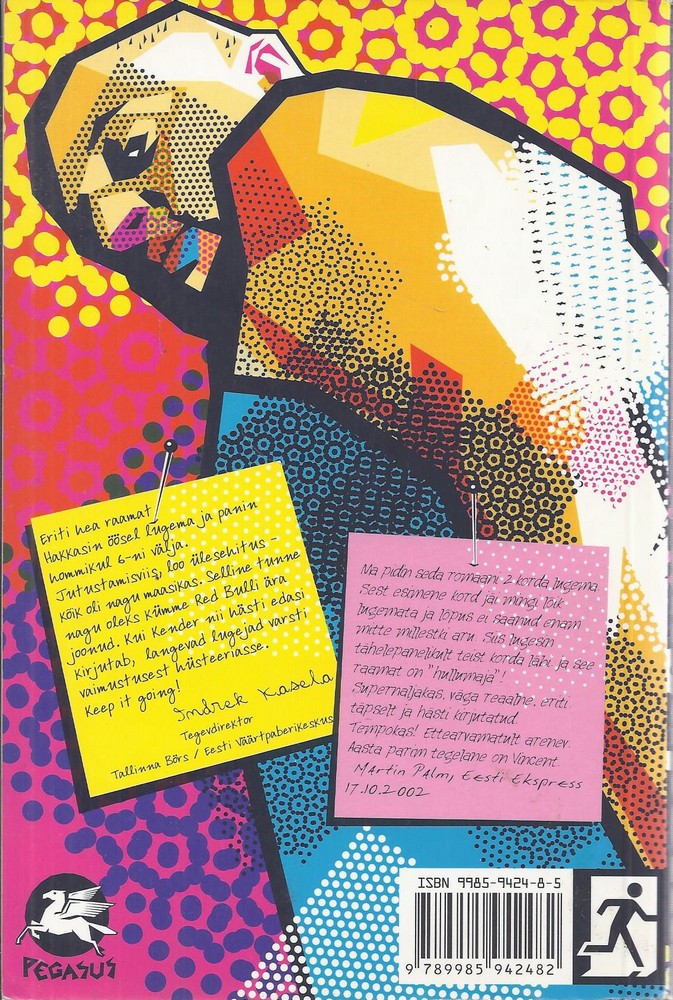 Eriti hea raamat.
Hakkasin öösel lugema ja panin
hommikul 6-ni välja.
Jutustamisviis, loo ülesehitus -
kõik oli nagu maasikas. Selline tunne
nagu oleks kümme Red Bulli ära
joonud. Kui Kender nii hästi edasi
kirjutab, langevad lugejad varsti
vaimustusest hüsteeriasse.
Keep it going!
Indrek Kasela
Tegevdirektor
Tallinna Börs / Eesti Väärtpaberikeskus
Ma pidin seda romaani 2 korda lugema
Sest esimene kord jäi mingi lõik
lugemata ja lõpus ei saanud enam
mitte millestki aru. Siis lugesin
tähelepanelikult teist korda läbi ja see
raamat on "hullumaja"!
Supernaljakas, väga reaalne, eriti
täpselt ja hästi kirjutatud.
Tempokas! Ettearvamatult arenev.
Aasta parim tegelane on Vincent.
Martin Palm, Eesti Ekspress
17.10.2002
ISBN 9985-9424-8-5
9 789985 942482
PEGASUS